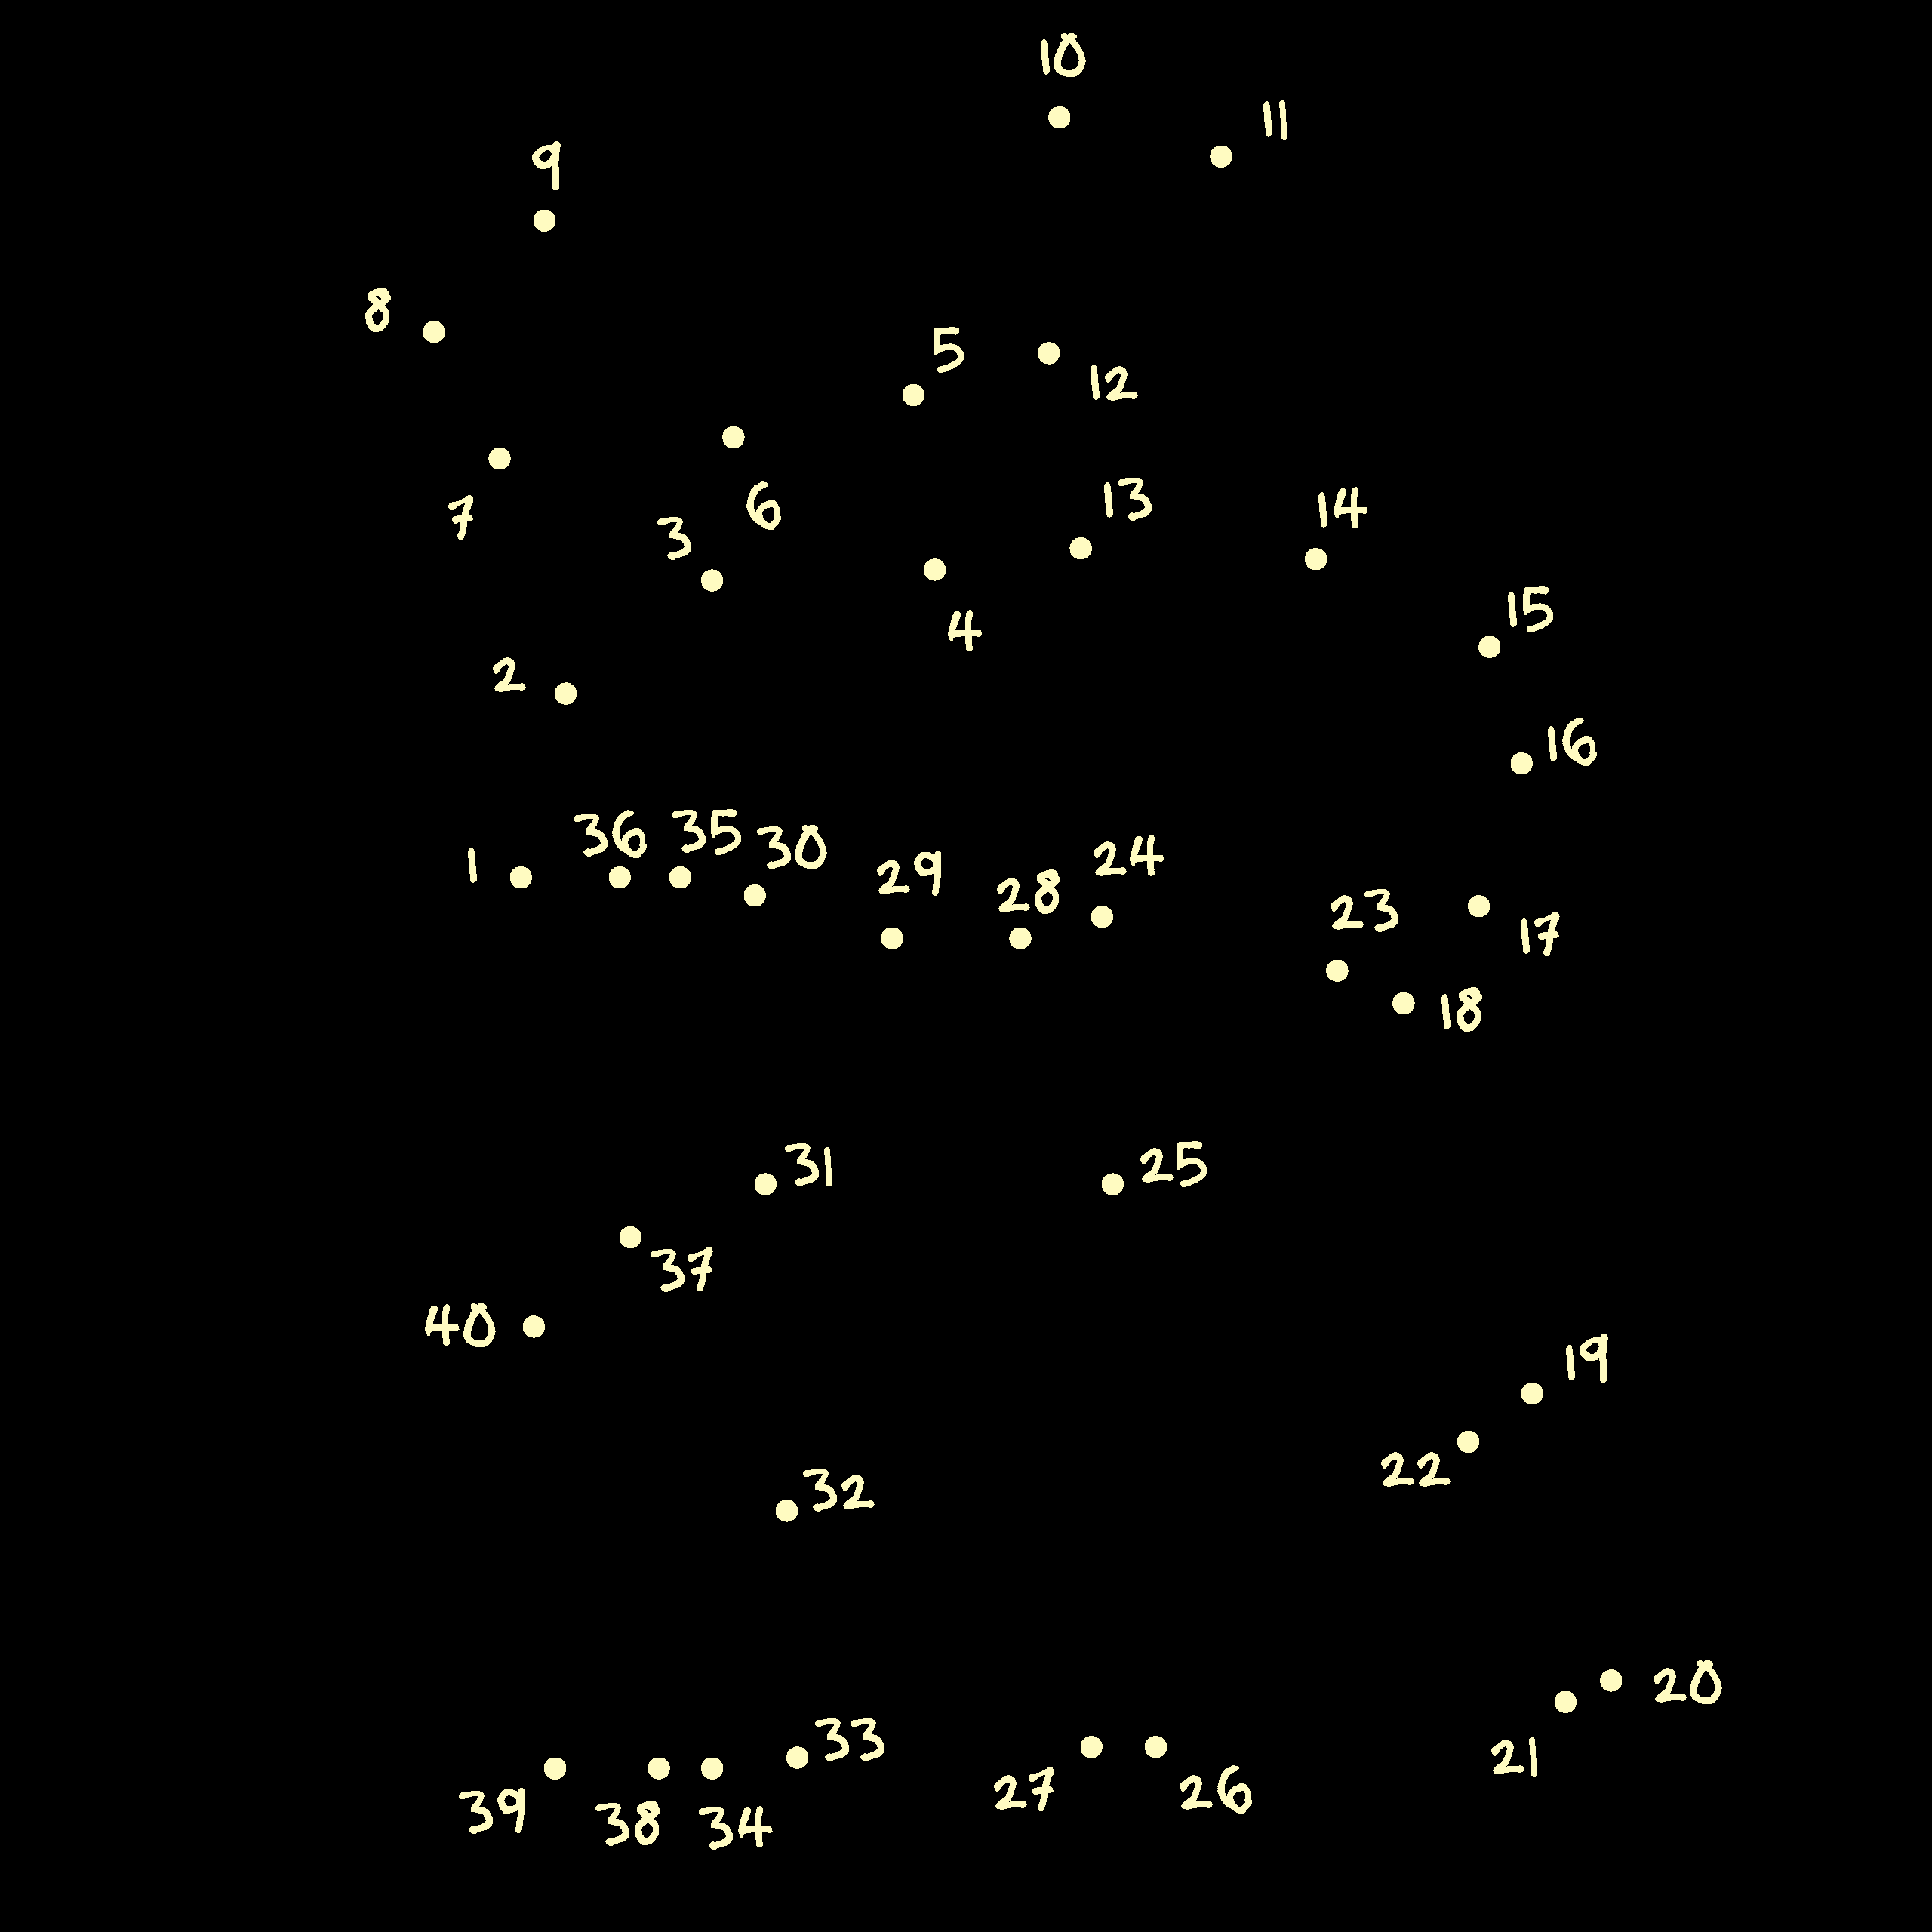 10
11
9
8
5
12
7
6
3
13
14
4
15
2
16
1
36
35
30
29
28
24
23
17
18
31
25
37
40
19
22
32
20
21
33
39
38
34
27
26